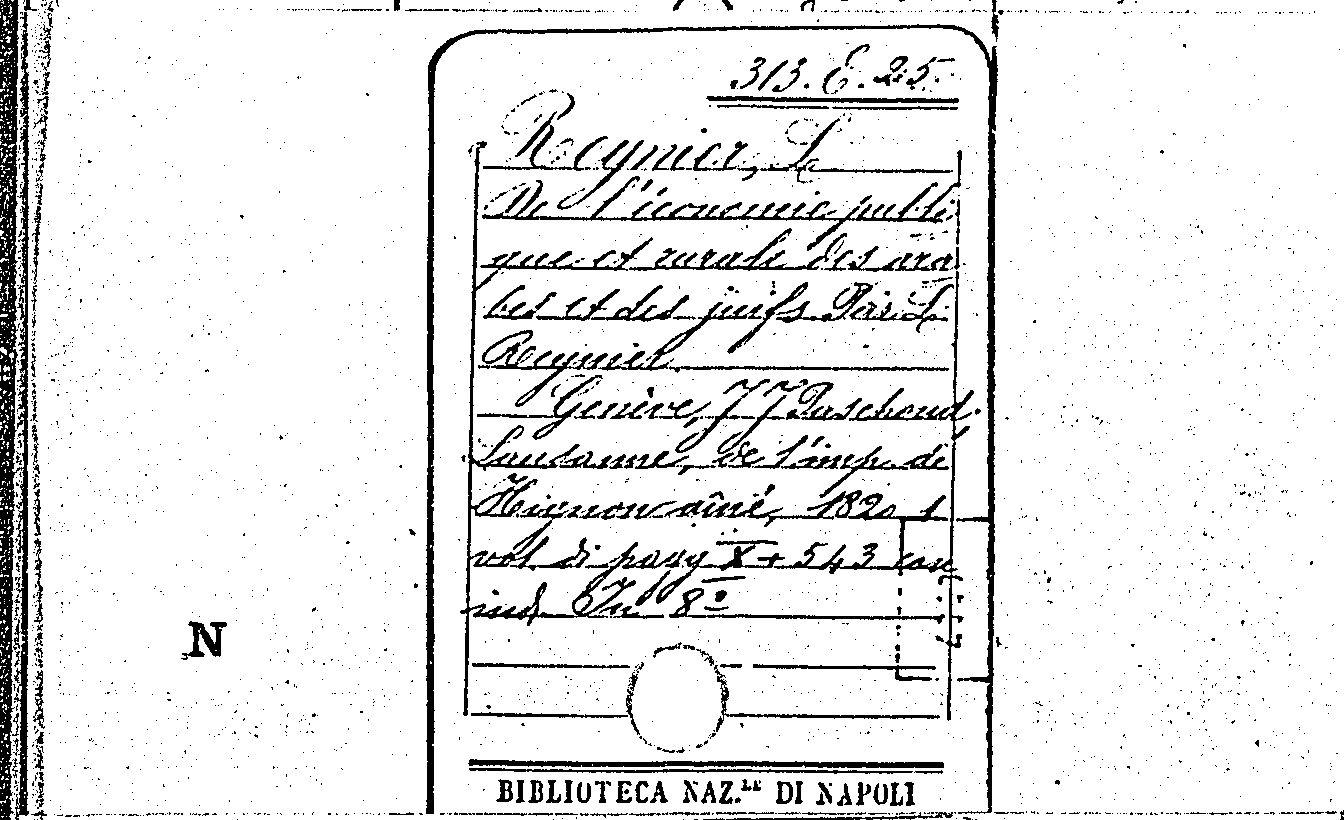 313. E. 25.
Reynier, L.
De l'économie publi
que et rurale des ara
bes et des juifs Par L.
Reynier
Genève, J J Paschoud,
Lausanne, de l'imp. de
Hignou aîné, 1820 1
vol di pagg X + 543 con
ind. In 8º
N
BIBLIOTECA NAZ.LE DI NAPOLI